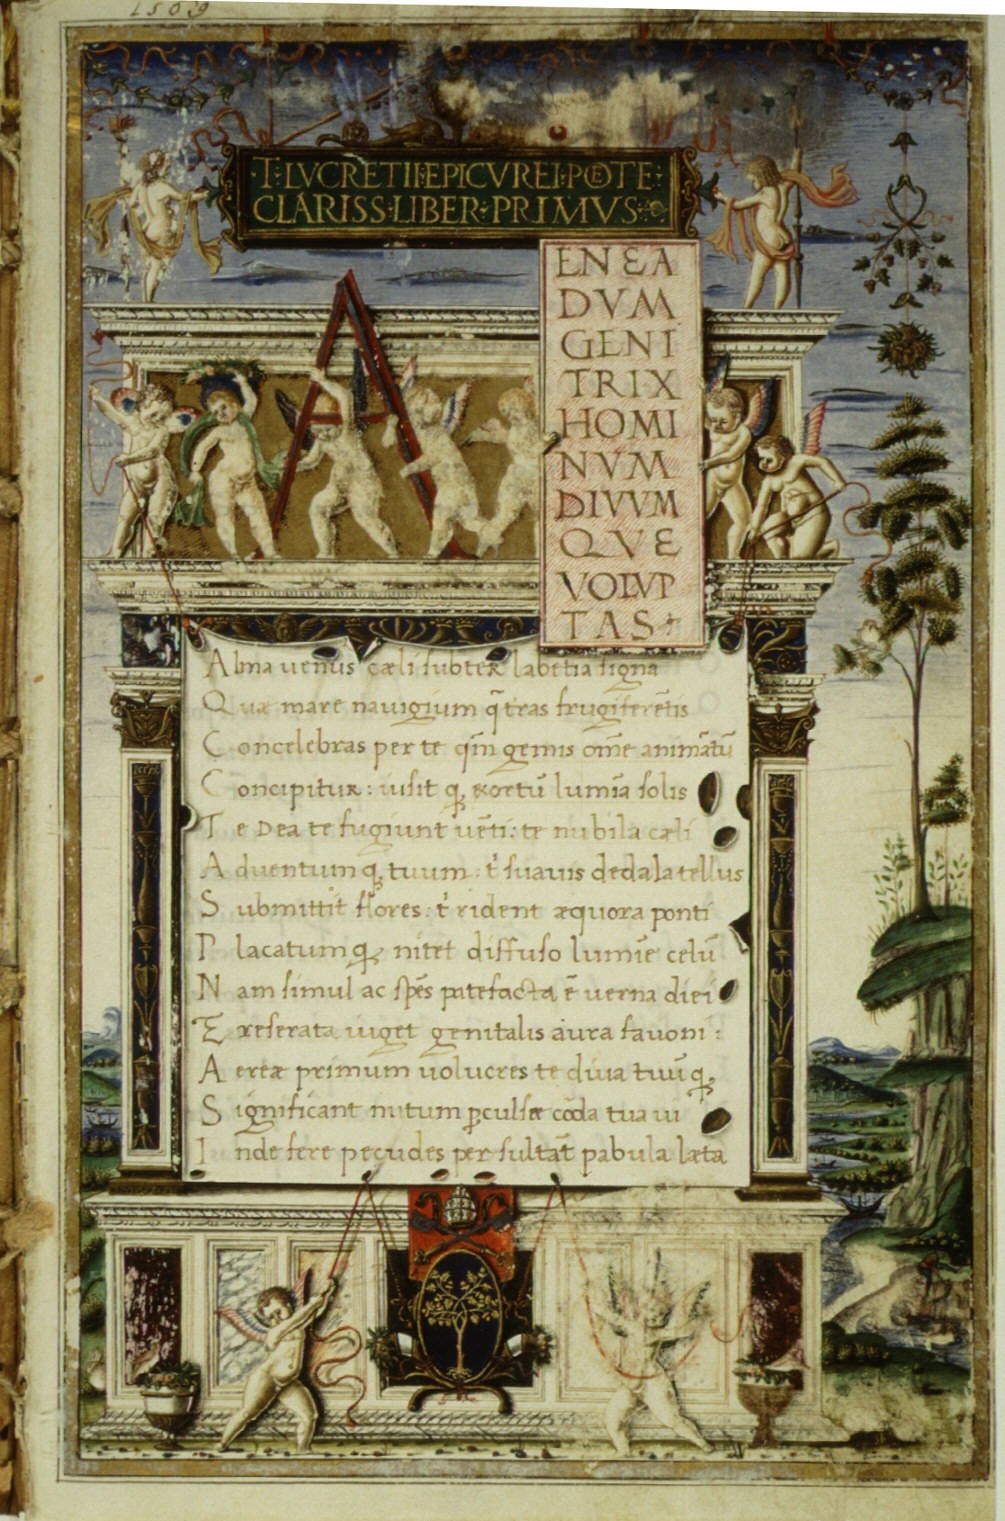 1509
·T·LVCRETII·EPICVREI·POETE·
CLARISS·LIBER·PRIMVS·
A
ENEA
DVM
GENI
TRIX
HOMI
NVM
DIVVM
QVE
VOLVP
TAS
Alma venus cæli subter labẽtia signa
Quæ mare navigium q̃ tras frugiferẽtis
Concelebras per te qm̃ genus om̃e animãtũ
Concipitur: visit q; exortũ lumĩa solis
Te Dea te fugiunt vẽti: te nubila cæli
Adventumq; tuum: t' suavis dedala tellus
Submittit flores: t' rident æquora ponti
Placatumq; nitet diffuso lumĩe celũ
Nam simul ac spẽs patefacta ẽ verna diei
E reserata viget genitalis aura favoni:
Aereæ primum volucres te diva tuũq;
Significant initum ꝑculsæ cõda tua vi
Inde fere pecudes per sultãt pabula læta